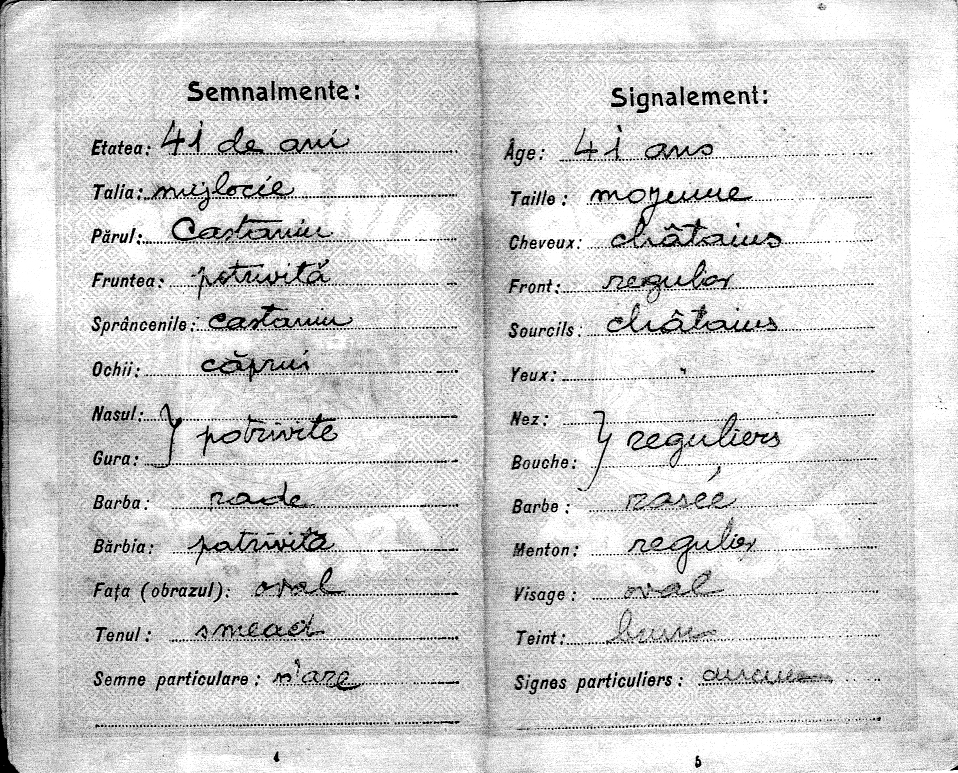 Semnalmente:
Etatea: 41 de ani
Talia: mijlocie
Părul: Castaniu
Fruntea: potrivită
Sprâncenile: castaniu
Ochii: căprui
Nasul:
Gura: } potrivite
Barba: rade
Bărbia: potrivită
Fața (obrazul): oval
Tenul: smead
Semne particulare: n'are
4
Signalement:
Âge: 41 ans
Taille: moyenne
Cheveux: châtains
Front: regulier
Sourcils: châtains
Yeux:
Nez:
Bouche: } reguliers
Barbe: rasée
Menton: regulier
Visage: oval
Teint: brun
Signes particuliers: aucune
5